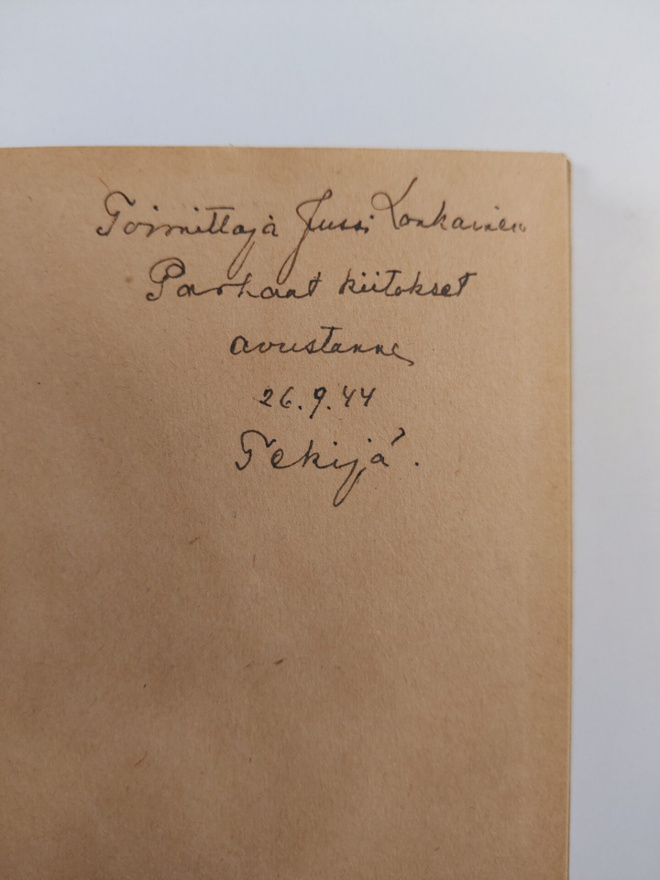 Toimittaja Jussi Lonkainen
Parhaat kiitokset
avustanne
26.9.44
Tekijä.